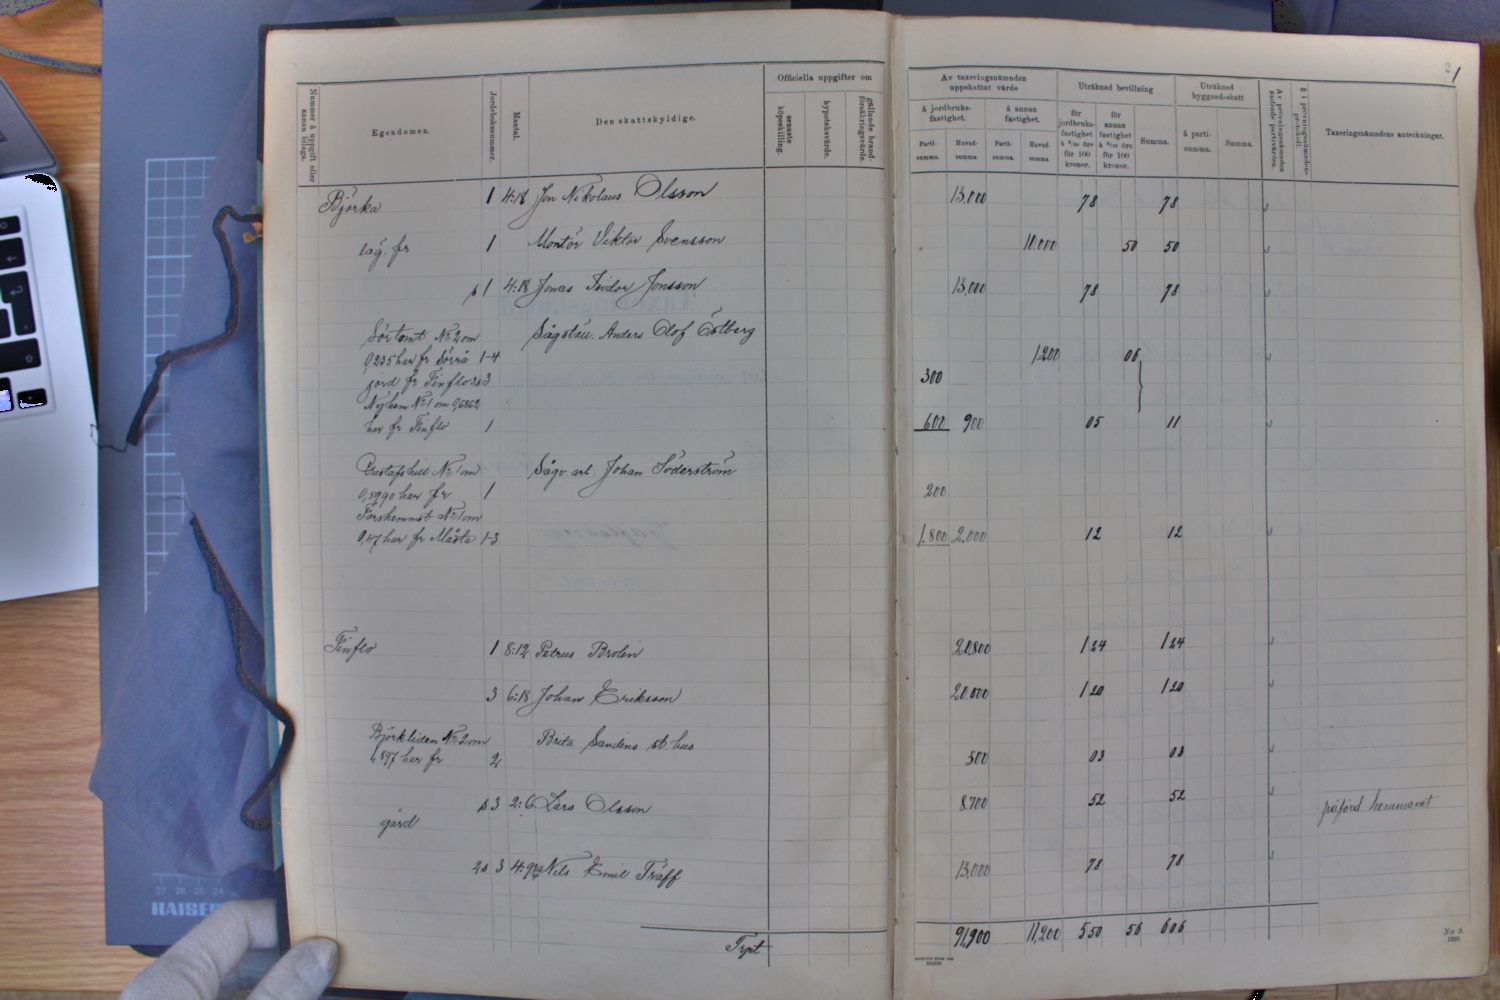 2/1
Nummer å uppgift eller annan bilaga.
Egendomen.
Jordboksnummer.
Mantal.
Den skattskyldige.
Officiella uppgifter om
senaste köpeskilling.
hypoteksvärde.
gällande brandförsäkringsvärde.
Av taxeringsnämnden uppskattat värde
å jordbruksfastighet.
å annan fastighet.
Partisumma.
Huvudsumma.
Partisumma.
Huvudsumma
Uträknad bevillning
för jordbruksfastighet à 6/10 öre för 100 kronor.
för annan fastighet à 5/10 öre för 100 kronor.
Summa.
Uträknad byggnadsskatt
å partisumma.
Summa.
Av prövningsnämnden ändrade partivärden.
§ i prövningsnämndens protokoll.
Taxeringsnämndens anteckningar.
Björka 1 4:18 Jon Nikolaus Olsson 13,000 78 78
läg. fr 1 Montör Viktor Svensson 10,000 50 50
s 1 4:18 Jonas Isidor Jonsson 13,000 78 78
Sörtomt No 2 om Sågstäl. Anders Olof Östberg
0,235 har fr Sörrå 1-4 1,200 06
jord fr Finflo s 3 300
Nyhem No 1 om 0,6862
har fr Finflo 1 600 900 05 11
Gustafshill No 1 om Sågv. arb. Johan Söderström
0,5990 har fr 1 200
Forshemmet No 1 om
0,47 har fr Måsta 1-3 1,800 2,000 12 12
Finflo 1 8:12 Petrus Brolin 20,800 1 24 1 24
3 6:18 Johan Eriksson 20,000 1 20 1 20
Björkliden No 2 om Brita Sandins st. hus
1,897 har fr 2 500 03 03
s 3 2:6 Lars Olsson 8,700 52 52 påförd hemmanet
gård
2s 3 4: Nils Emil Träff 13,000 78 78
Trpt 91,900 11,200 5 50 56 6 06
N:r 9.